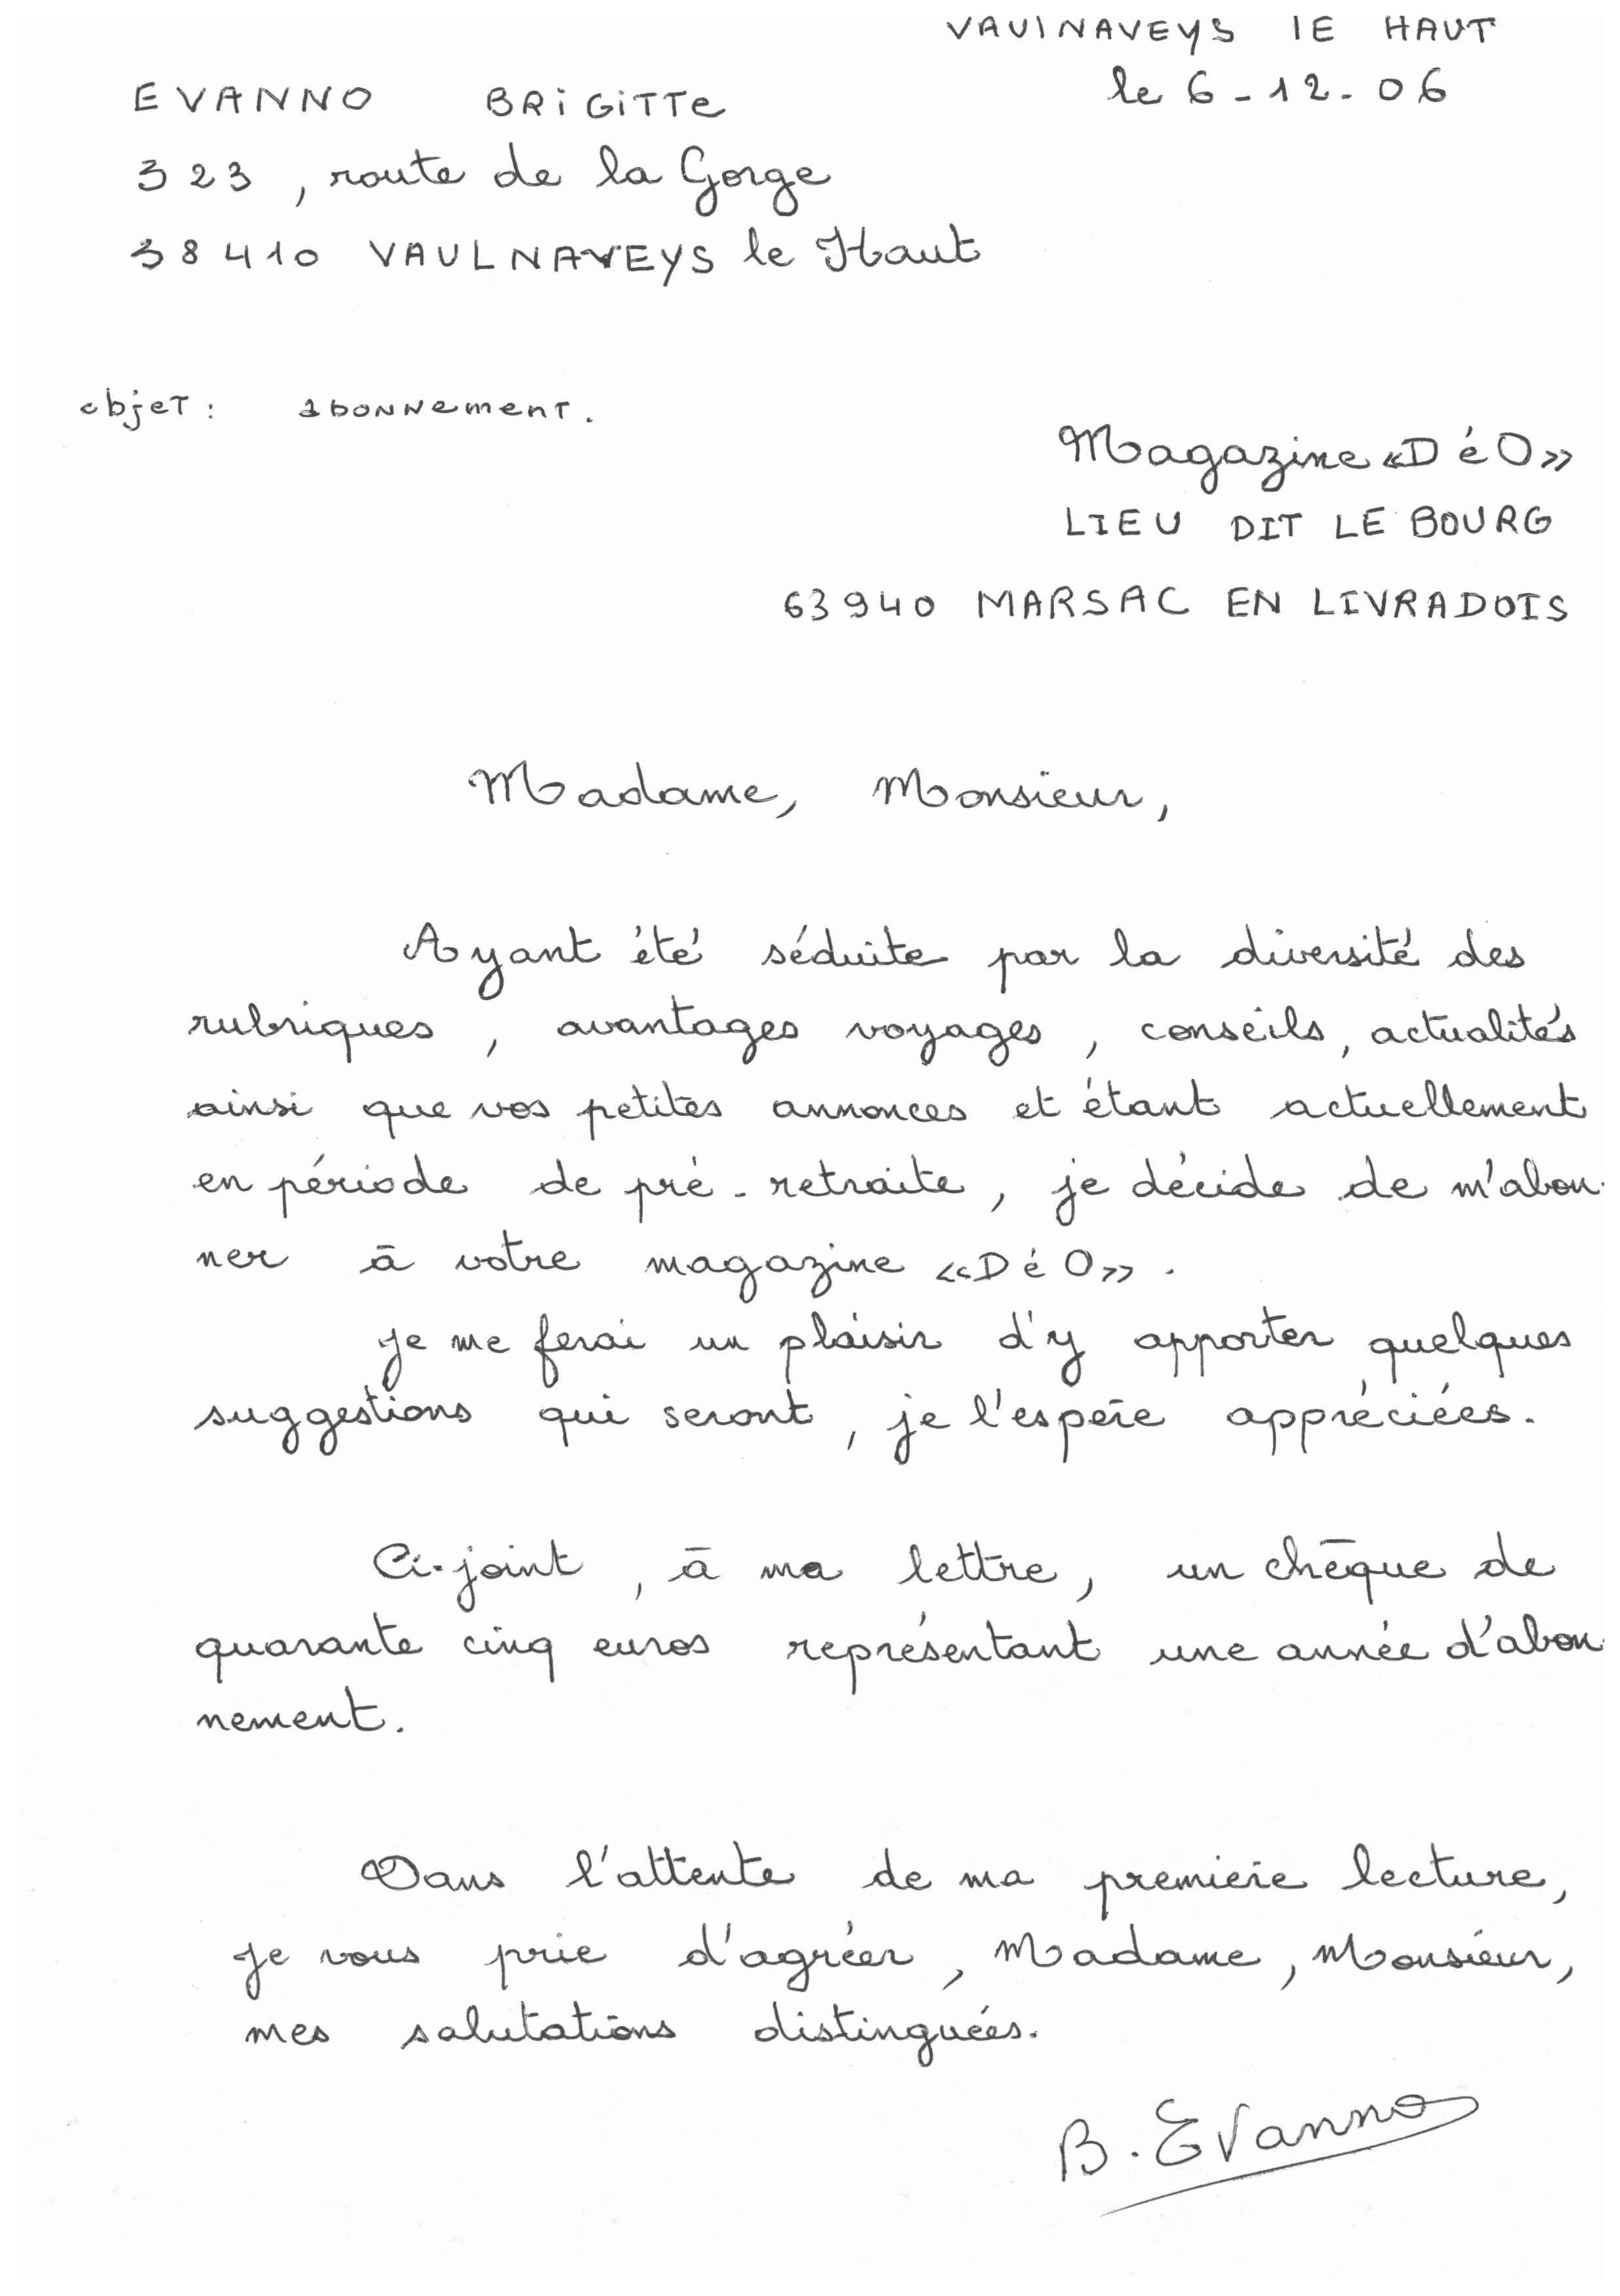 VAULNAVEYS lE HAUT
le 6-12-06
EVANNO BRIGITTE
323, route de la Gorge
38410 VAULNAVEYS le Haut
objet : abonnement.
Magazine «DéO»
LIEU DIT LE BOURG
63940 MARSAC EN LIVRADOIS
Madame, Monsieur,
Ayant été séduite par la diversité des
rubriques, avantages voyages, conseils, actualités
ainsi que vos petites annonces et étant actuellement
en période de pré-retraite, je décide de m'abon-
ner à votre magazine «DéO».
je me ferai un plaisir d'y apporter quelques
suggestions qui seront, je l'espère appréciées.
Ci-joint, à ma lettre, un chèque de
quarante cinq euros représentant une année d'abon-
nement.
Dans l'attente de ma première lecture,
je vous prie d'agréer, Madame, Monsieur,
mes salutations distinguées.
B. Evanno